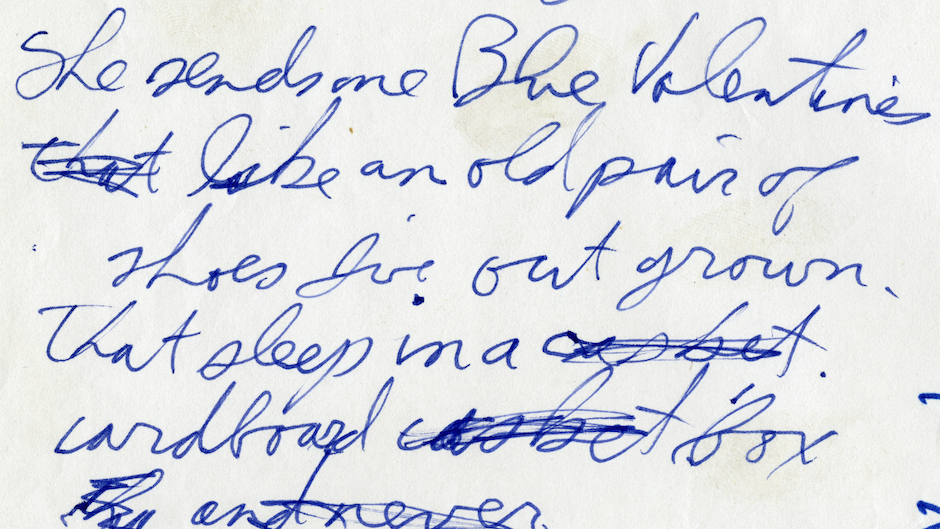 She sends me Blue Valentines
that like an old pair of
shoes Ive out grown.
That sleep in a casket.
cardboard casket Box
and never